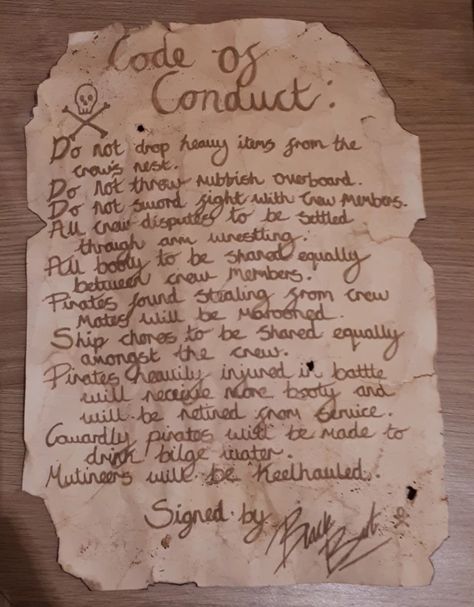 Code of
Conduct:
Do not drop heavy items from the
crow's nest.
Do not throw rubbish overboard.
Do not sword fight with crew members.
All crew disputes to be settled
through arm wrestling.
All booty to be shared equally
between crew members.
Pirates found stealing from crew
mates will be marooned.
Ship chores to be shared equally
amongst the crew.
Pirates heavily injured in battle
will receive more booty and
will be retired from service.
Cowardly pirates will be made to
drink bilge water.
Mutineers will be Keelhauled.
Signed by Black Bart